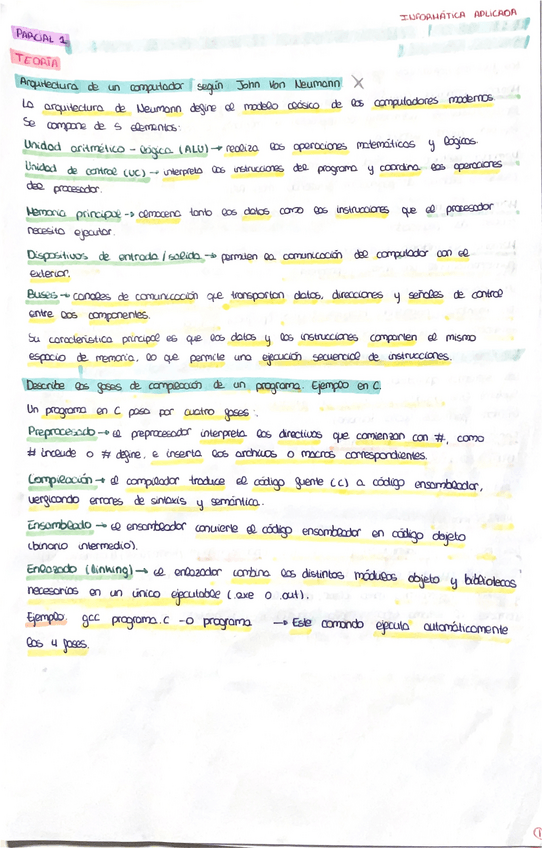 INFORMÁTICA APLICADA
PARCIAL 1
TEORÍA
Arquitectura de un computador según John Von Neumann X
La arquitectura de Neumann define el modelo clásico de los computadores modernos.
Se compone de 5 elementos:
Unidad aritmético-lógica (ALU) → realiza las operaciones matemáticas y lógicas.
Unidad de control (UC) → interpreta las instrucciones del programa y coordina las operaciones
del procesador.
Memoria principal → almacena tanto los datos como las instrucciones que el procesador
necesita ejecutar.
Dispositivos de entrada/salida → permiten la comunicación del computador con el
exterior.
Buses → canales de comunicación que transportan datos, direcciones y señales de control
entre los componentes.
Su característica principal es que los datos y las instrucciones comparten el mismo
espacio de memoria, lo que permite una ejecución secuencial de instrucciones.
Describe las fases de compilación de un programa. Ejemplo en C.
Un programa en C pasa por cuatro fases:
Preprocesado → el preprocesador interpreta las directivas que comienzan con #, como
# include o # define, e inserta los archivos o macros correspondientes.
Compilación → el compilador traduce el código fuente (.c) a código ensamblador,
verificando errores de sintaxis y semántica.
Ensamblado → el ensamblador convierte el código ensamblador en código objeto
(binario intermedio).
Enlazado (linking) → el enlazador combina los distintos módulos objeto y bibliotecas
necesarios en un único ejecutable (.exe o .out).
Ejemplo: gcc programa.c -o programa → Este comando ejecuta automáticamente
las 4 fases.
1